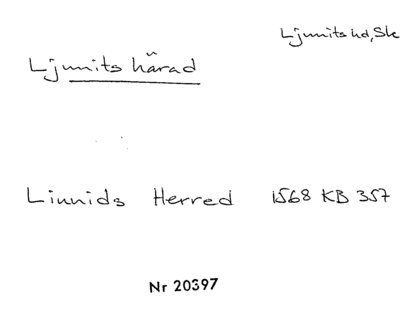 Ljunits hd, Sk
Ljunits härad
Linnids Herred 1568 KB 357
Nr 20397